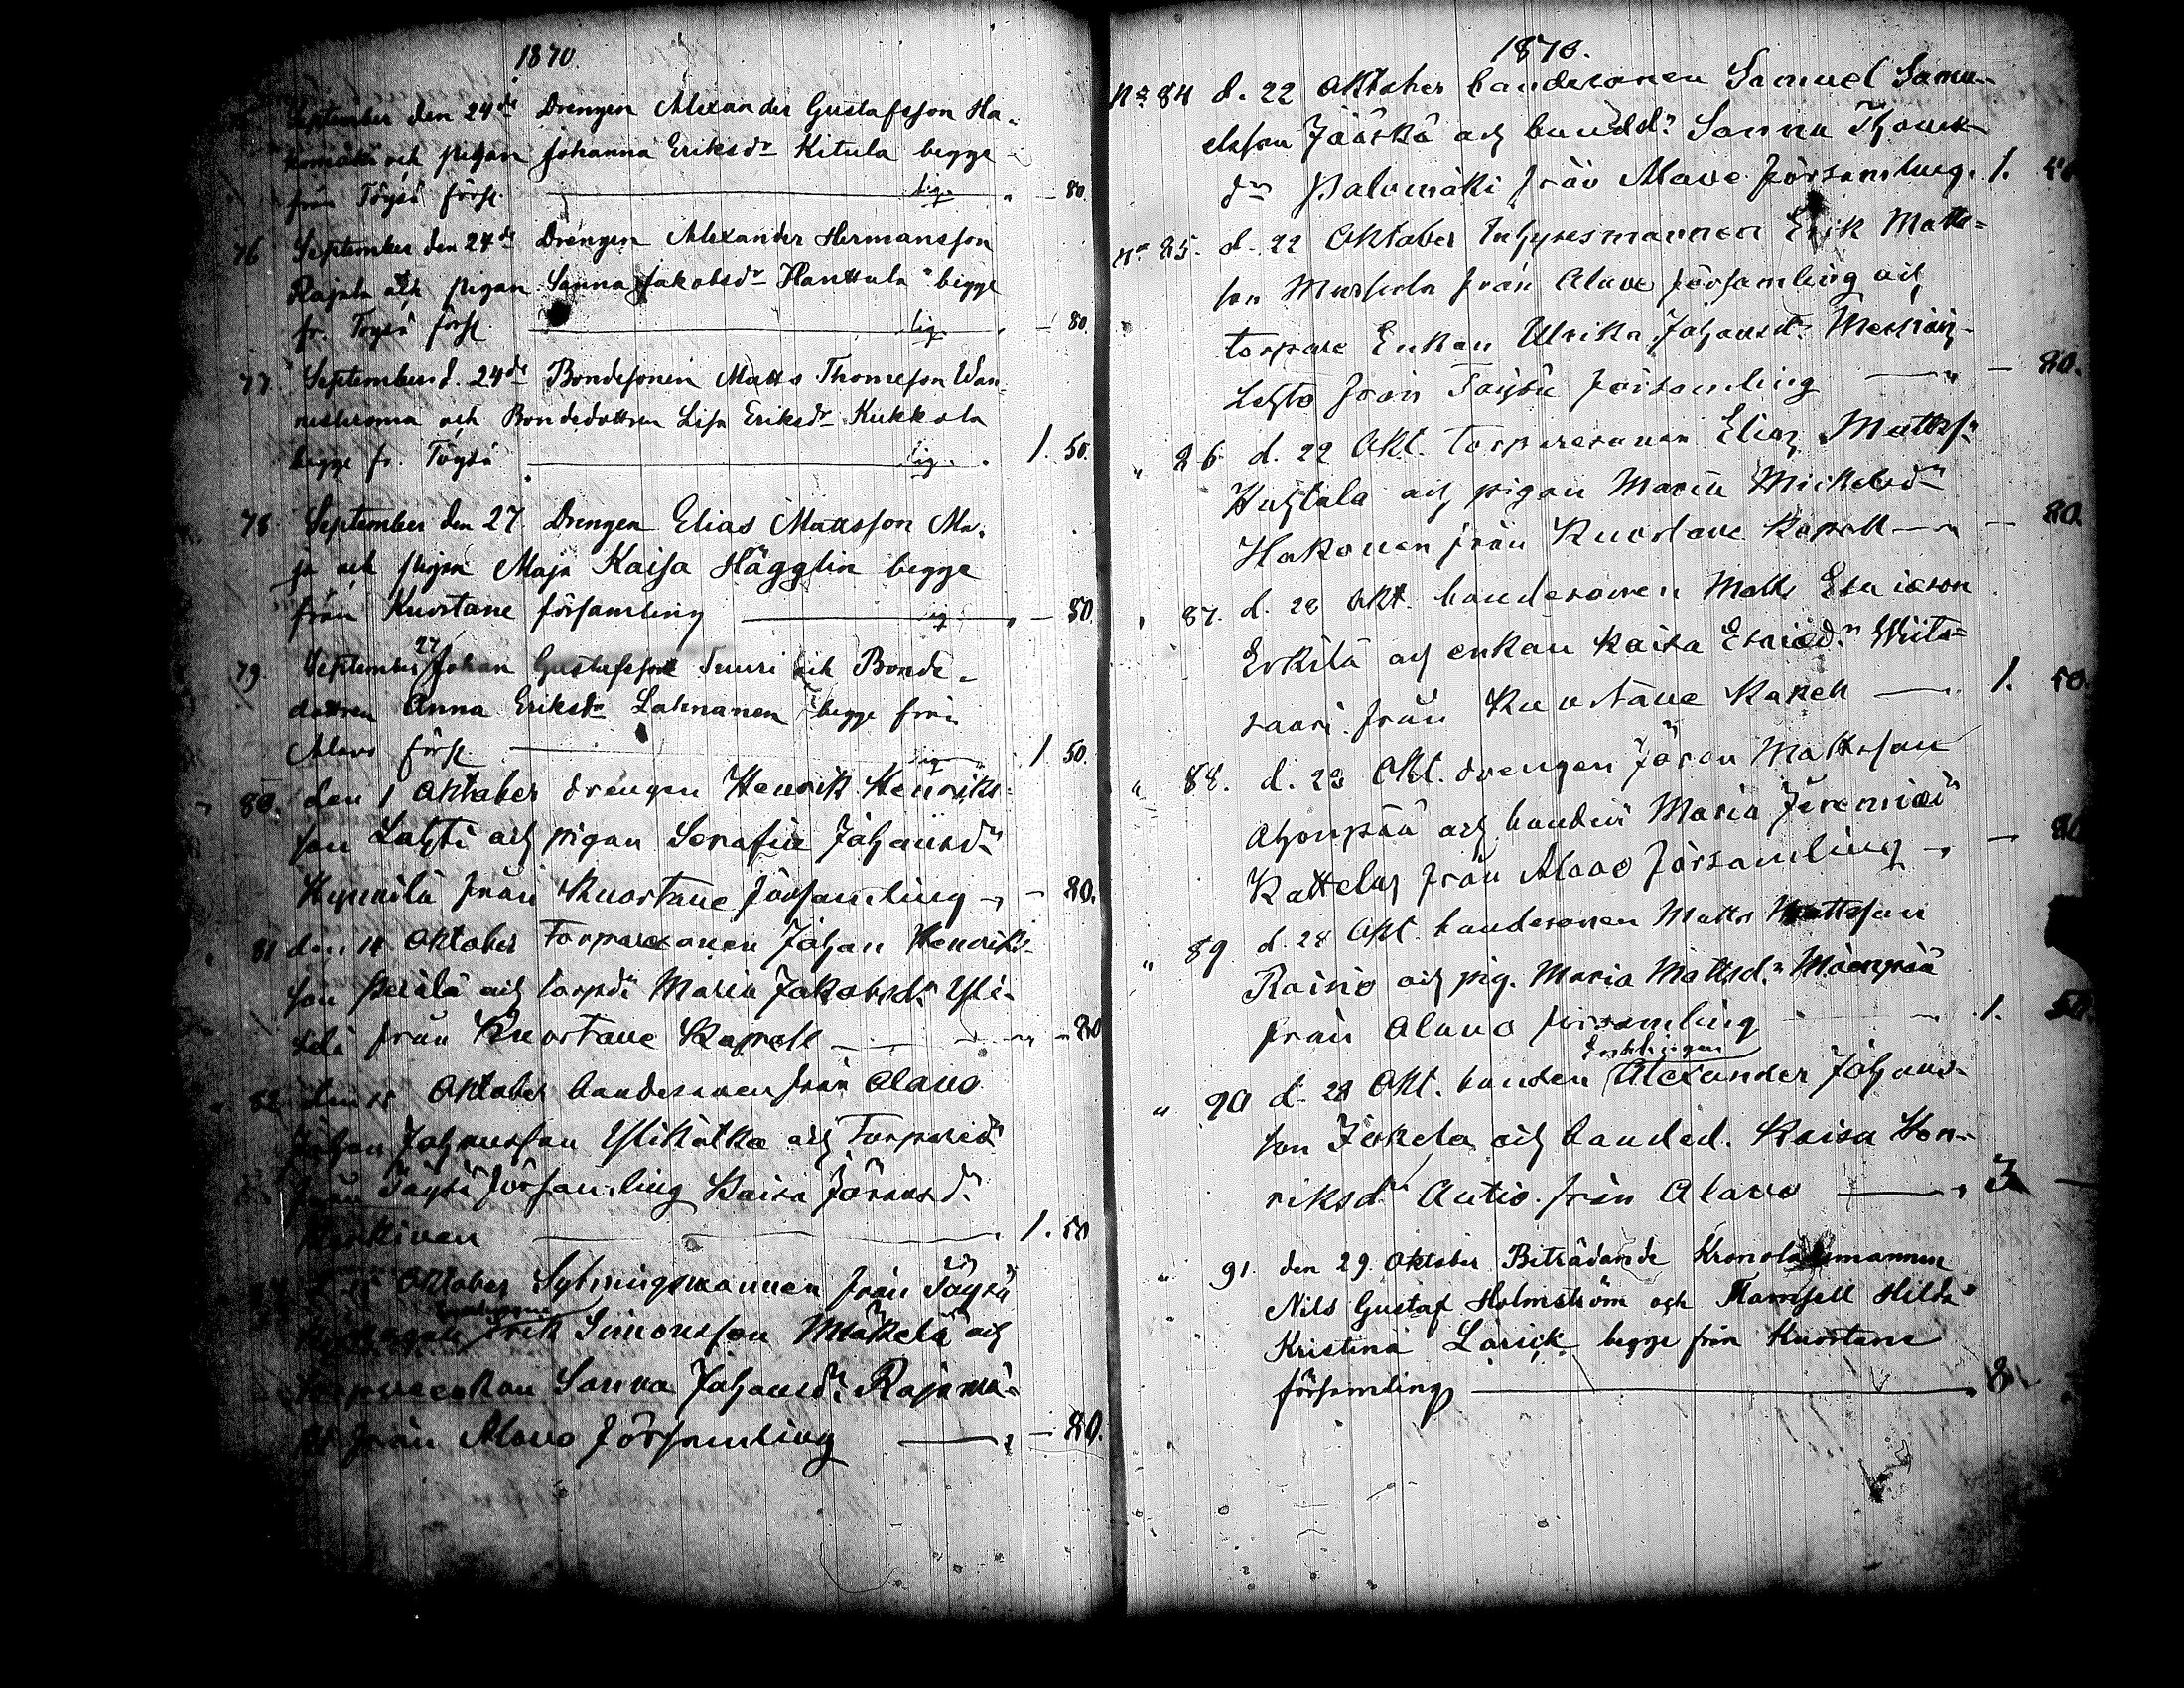 1870.
September den 24de Drengen Alexander Gustafsson Ha-
komäki och pigan Johanna Eriksdr Kitula begge
från Töysä förs. lig. " — 80.
76 September den 24de Drengen Alexander Hermansson
Rajala och pigan Sanna Jakobsdr Hanttula begge
fr. Töysä förs. lig. — 80.
77. September d. 24de Bondesonen Matts Thomesson Wan-
och Bondedottren Lisa Eriksdr Kukkola
begge fr. Töysä lig. 1. 50.
78 September den 27. Drengen Elias Mattsson Ma-
ja och pigan Maja Kaisa Hägglin begge
från Kuortane församling lig " — 80.
79. September 27 Johan Gustafsson Suuri och Bonde-
dottren Anna Eriksdr Lahnanen begge från
Alavo förs. lig 1. 50.
80. den 1 Oktober drengen Henrik Henriks-
son Lahti och pigan Serafia Johansdr
från Kuortane församling " — 80.
81 den 14 Oktober Torparesonen Johan Henriks-
son Perälä och torpdr Maria Jakobsdr Yli-
från Kuortane Kapell — 80
82 den 15 Oktober bondesonen från Alavo
Johan Johansson Ylikätka och Torparedr
från Töysä församling Kaisa Jöransdr
1. 50
d. 15 Oktober Sytningsmannen från Töysä
Erik Simonsson Mäkelä och
torpareenkan Sanna Johansdr Rajamä-
ki från Alavo församling — 80.
1870.
No 84 d. 22 Oktober bondesonen Samuel Samu-
elsson Jääskä och bondedr Sanna
dr Palomäki från Alavo församling. 1.
No 85. d. 22 Oktober Inhysesmannen Erik Matts-
son från Alavo församling och
torpare Enkan Ulrika Johansdr
Lehto från Töysä församling " — 80.
" 86 d. 22 Okt. Torparesonen Elias Mattss:n
Huhtala och pigan Maria Mickelsdr
Hakonen från Kuortane Kapell — 80.
" 87. d. 28 Okt. bondesonen Matts Esaiason
Erkilä och enkan Kaisa Esaiædr Wiita-
saari från Kuortane Kapell 1. 50.
" 88. d. 28 Okt. drengen Jöran Mattsson
Ahonpää och bondedr Maria Jeremiædr
Kattelus från Alavo församling " — 80
" 89 d. 28 Okt. bondesonen Matts Mattsson
Rainio och pig. Maria Mattsdr Mäenpää
från Alavo församling 1. 50.
Enklingen
" 90 d. 28 Okt. bonden Alexander Johans-
son Jokela och bonded. Kaisa Hen-
riksdr Autio från Alavo " 3 —
" 91. den 29 Oktober Biträdande Kronolänsmannen
Nils Gustaf Holmström och Mamsell Hilda
Kristina begge från Kuortane
församling 8